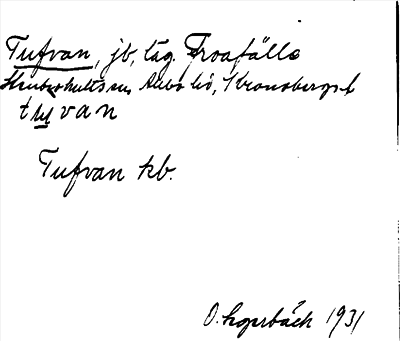 Tufvan, jb, läg. Froafälle
Stenbrohults sn, Allbo hd, Kronobergs l
tuvan
Tufvan kb.
O. Lagerbäck 1931